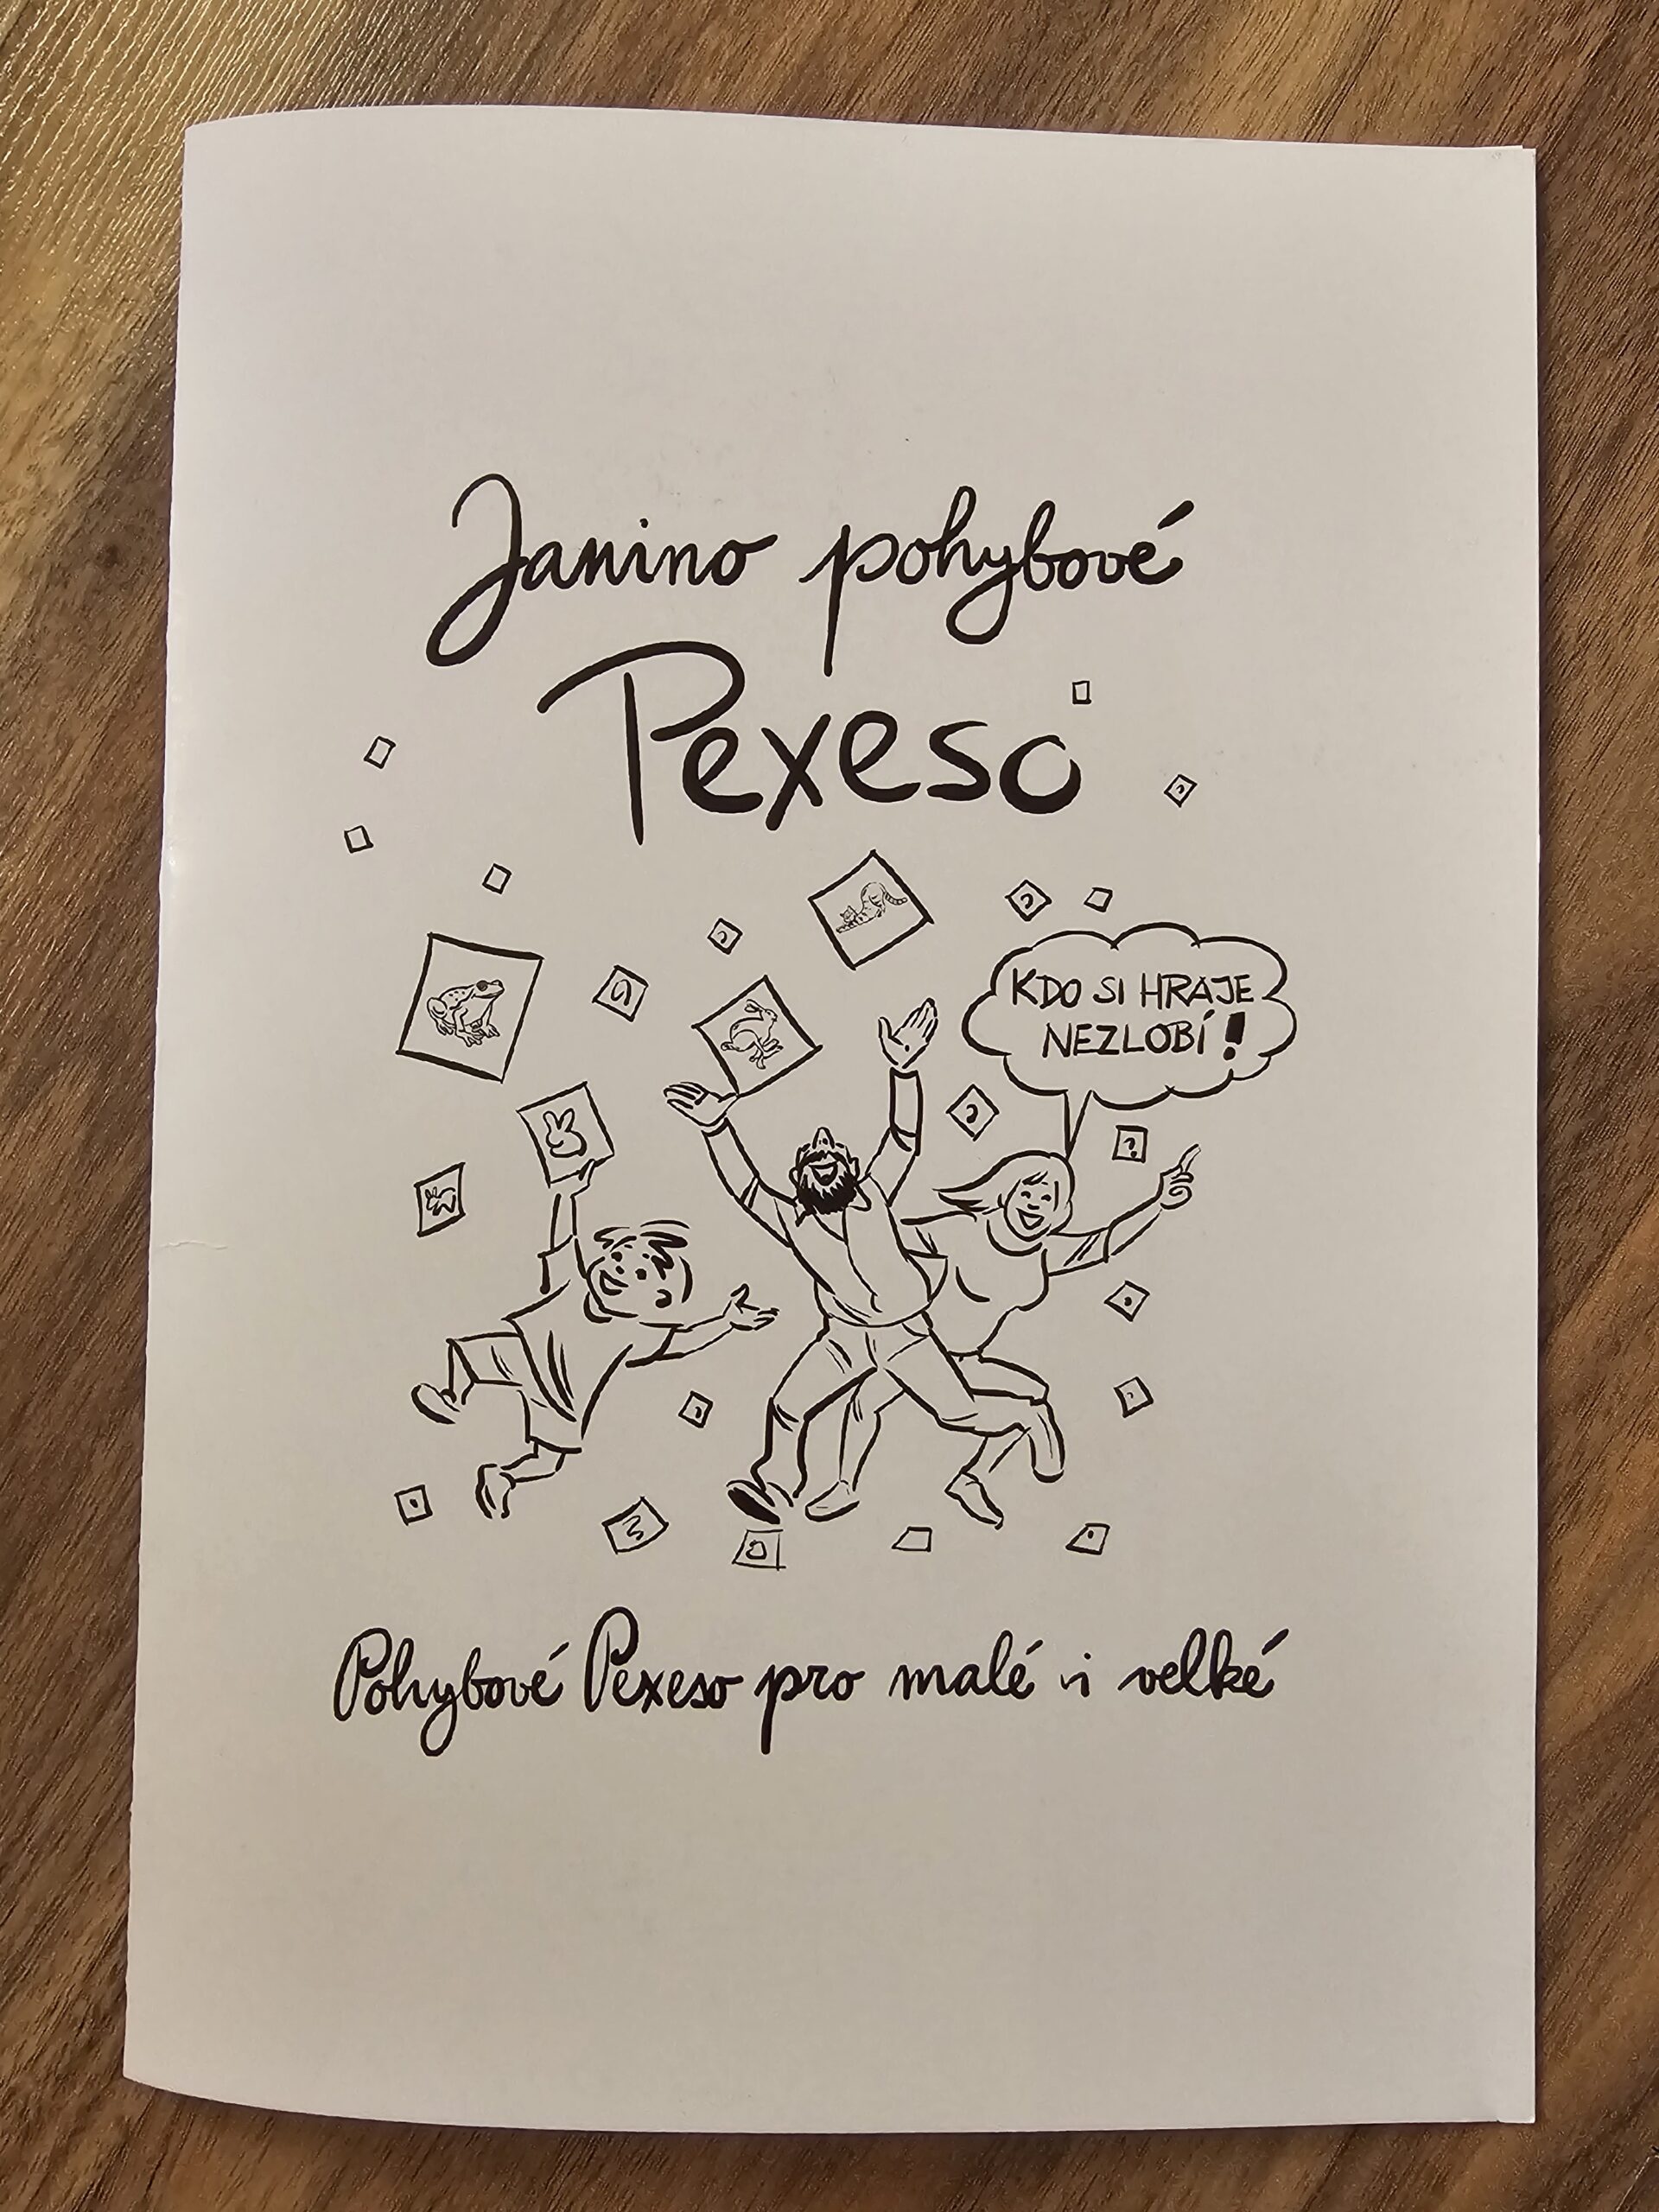 Janino pohybové
Pexeso
KDO SI HRAJE
NEZLOBÍ!
?
Pohybové Pexeso pro malé i velké